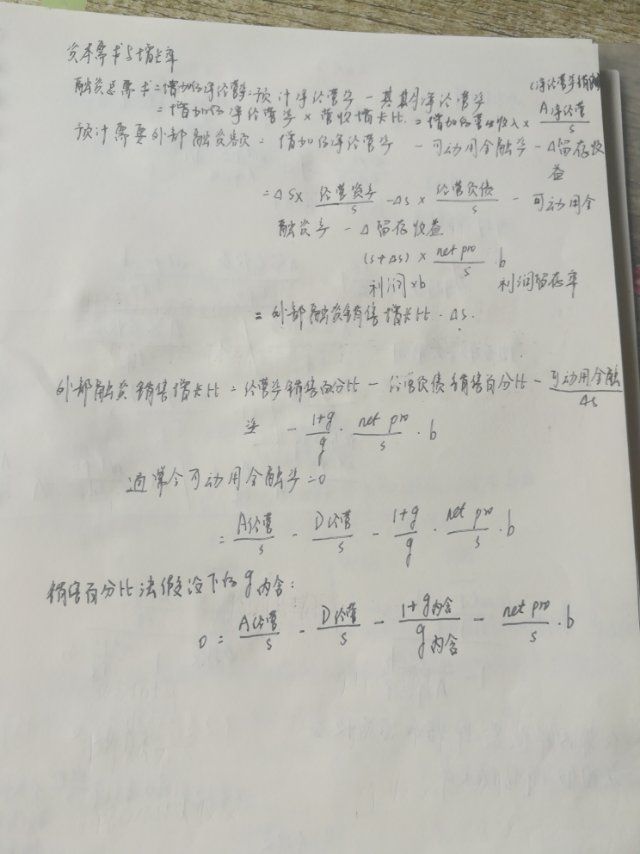 资本需求与增长率
融资总需求=增加的净经营资产=预计净经营资产-基期净经营资产 (净经营资产销售
=增加的净经营资产×营收增长比=增加的营业收入× A净经营/s
预计需要外部融资额=增加的净经营资产-可动用金融资产-Δ留存收
益
=ΔS× 经营资产/s -Δs× 经营负债/s -可动用金
融资产-Δ留存收益
(s+Δs)× net pro/s ·b
利润×b 利润留存率
=外部融资销售增长比·Δs.
外部融资销售增长比=经营资产销售百分比-经营负债销售百分比- 可动用金融/Δs
资产 - 1+g/g · net pro/s · b
通常令可动用金融资产=0
= A经营/s - D经营/s - 1+g/g · net pro/s · b
销售百分比法假设下的g内含:
0 = A经营/s - D经营/s - 1+g内含/g内含 - net pro/s · b